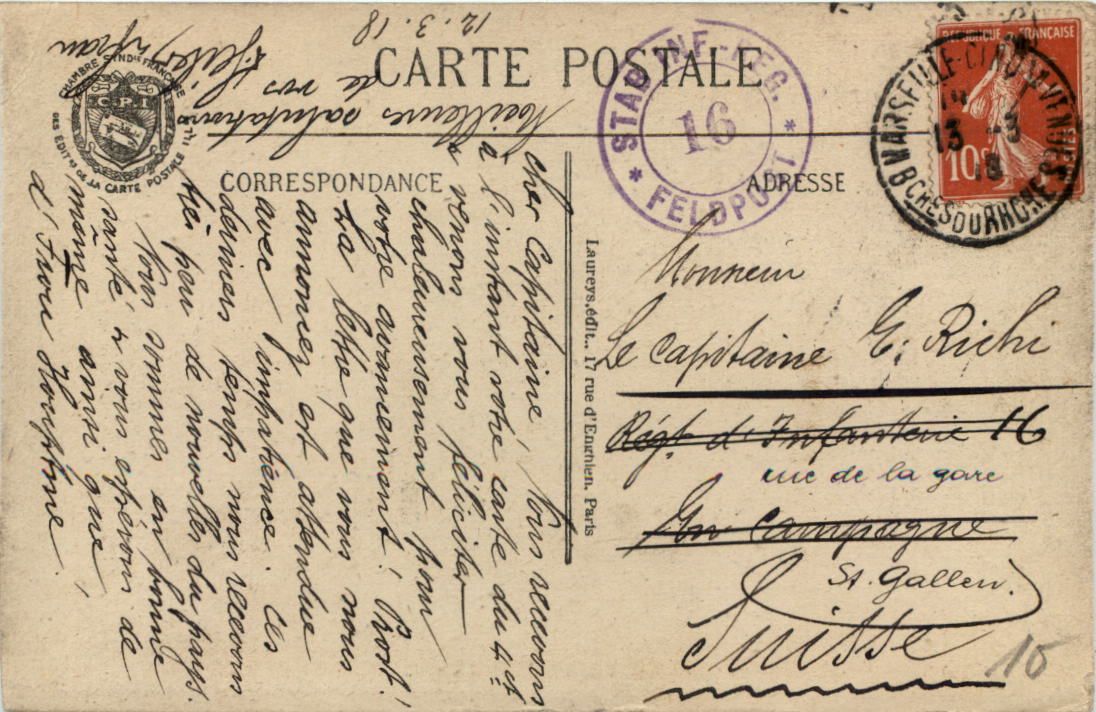 CARTE POSTALE
CHAMBRE SYNDle FRANÇAISE
C.P.I
DES EDITrs DE LA CARTE POSTALE ILLtée
CORRESPONDANCE
ADRESSE
STAB INF.-REG.
16
* FELDPOST *
RÉPUBLIQUE FRANÇAISE
10c
MARSEILLE
13 -3
18
Bches DU RHÔNE
Laureys, édit., 17 rue d'Enghien, Paris
Monsieur
Le Capitaine E. Richi
Régt. d'Infanterie 16
rue de la gare
En Campagne
St. Gallen.
Suisse
10
Cher Capitaine, Nous recevons
à l'instant votre carte du 4 ct
& venons vous féliciter
chaleureusement pour
votre avancement! Prosit!
La lettre que vous nous
annoncez est attendue
avec impatience. Ces
derniers temps nous recevons
très peu de nouvelles du pays.
Nous sommes en bonne
santé & vous espérons de
même ainsi que
Meilleures salutations
de vos
12.3.18